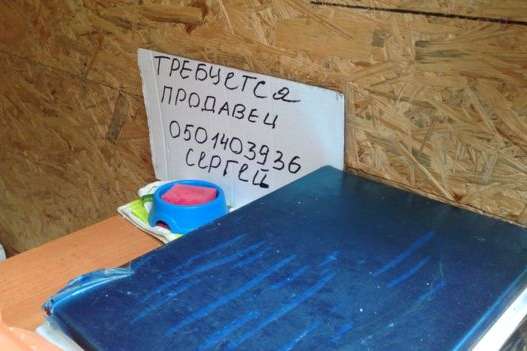 ТРЕБУЕТСЯ
ПРОДАВЕЦ
0501403936
СЕРГЕЙ